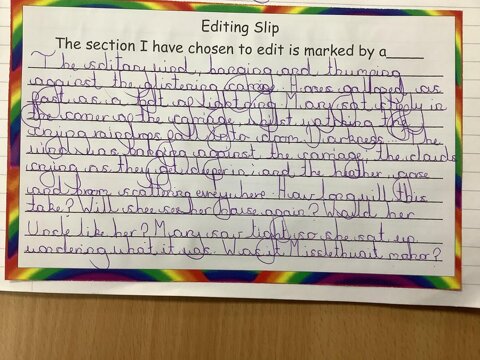 Editing Slip
The section I have chosen to edit is marked by a____
The solitary wind, banging and thumping
against the glistening carriage. Horses galloped as
fast as a bolt of lightning. Mary sat in
the corner of the carriage whilst watching the
crying raindrops fall to doom. Darkness. The
wind was against the carriage, the clouds
crying as they got deeper in and the heather, gorse
and broom everywhere. How long will this
take? Will she see her house again? Would her
Uncle like her? Mary saw light so she sat up
wondering what it was. Was it Misslethwait manor?